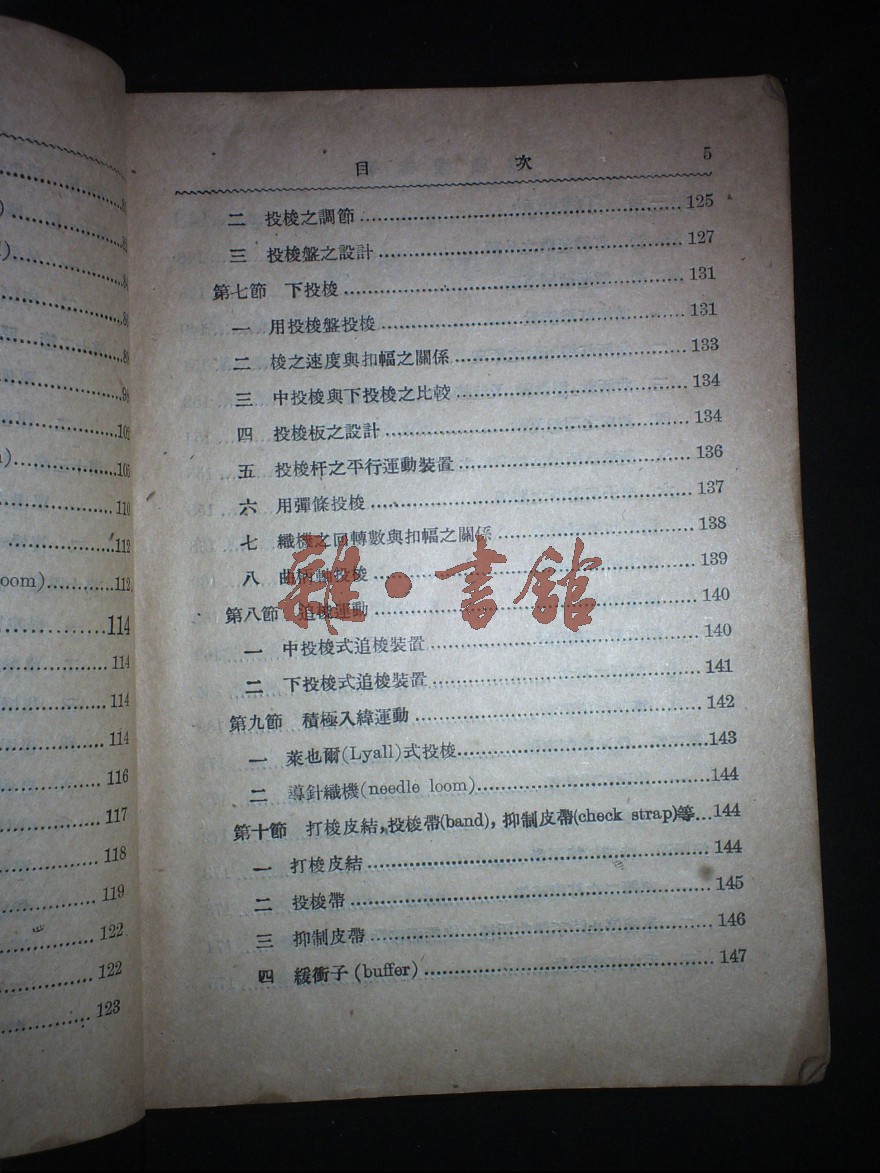 目 次 5
二 投梭之調節 125
三 投梭盤之設計 127
第七節 下投梭 131
一 用投梭盤投梭 131
二 梭之速度與扣幅之關係 133
三 中投梭與下投梭之比較 134
四 投梭板之設計 134
五 投梭杆之平行運動裝置 136
六 用彈條投梭 137
七 織機之回轉數與扣幅之關係 138
八 曲柄軸投梭 139
第八節 追梭運動 140
一 中投梭式追梭裝置 140
二 下投梭式追梭裝置 141
第九節 積極入緯運動 142
一 萊也爾(Lyall)式投梭 143
二 導針織機(needle loom) 144
第十節 打梭皮結,投梭帶(band),抑制皮帶(check strap)等 144
一 打梭皮結 144
二 投梭帶 145
三 抑制皮帶 146
四 緩衝子(buffer) 147
雜·書館
98
102
105
110
112
oom) 112
114
114
114
114
116
117
118
119
122
122
123